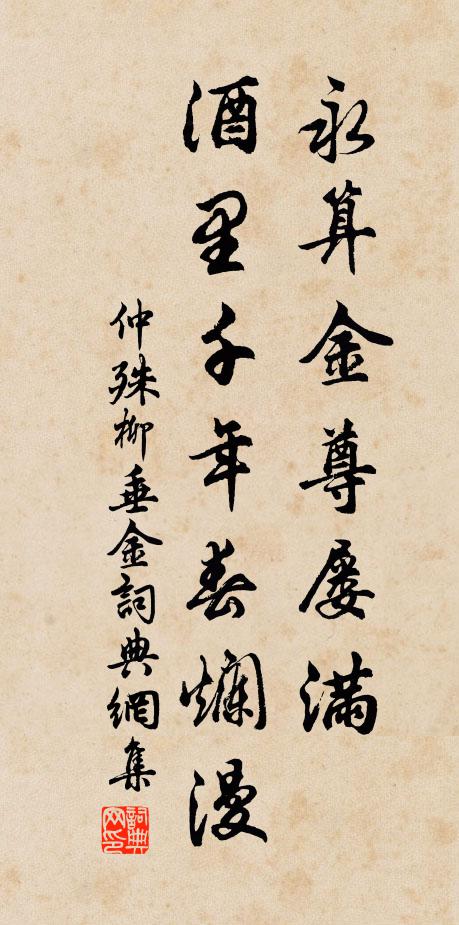 永算金尊屢滿
酒里千年春爛漫
仲殊柳垂金詞典網集
詞典網印